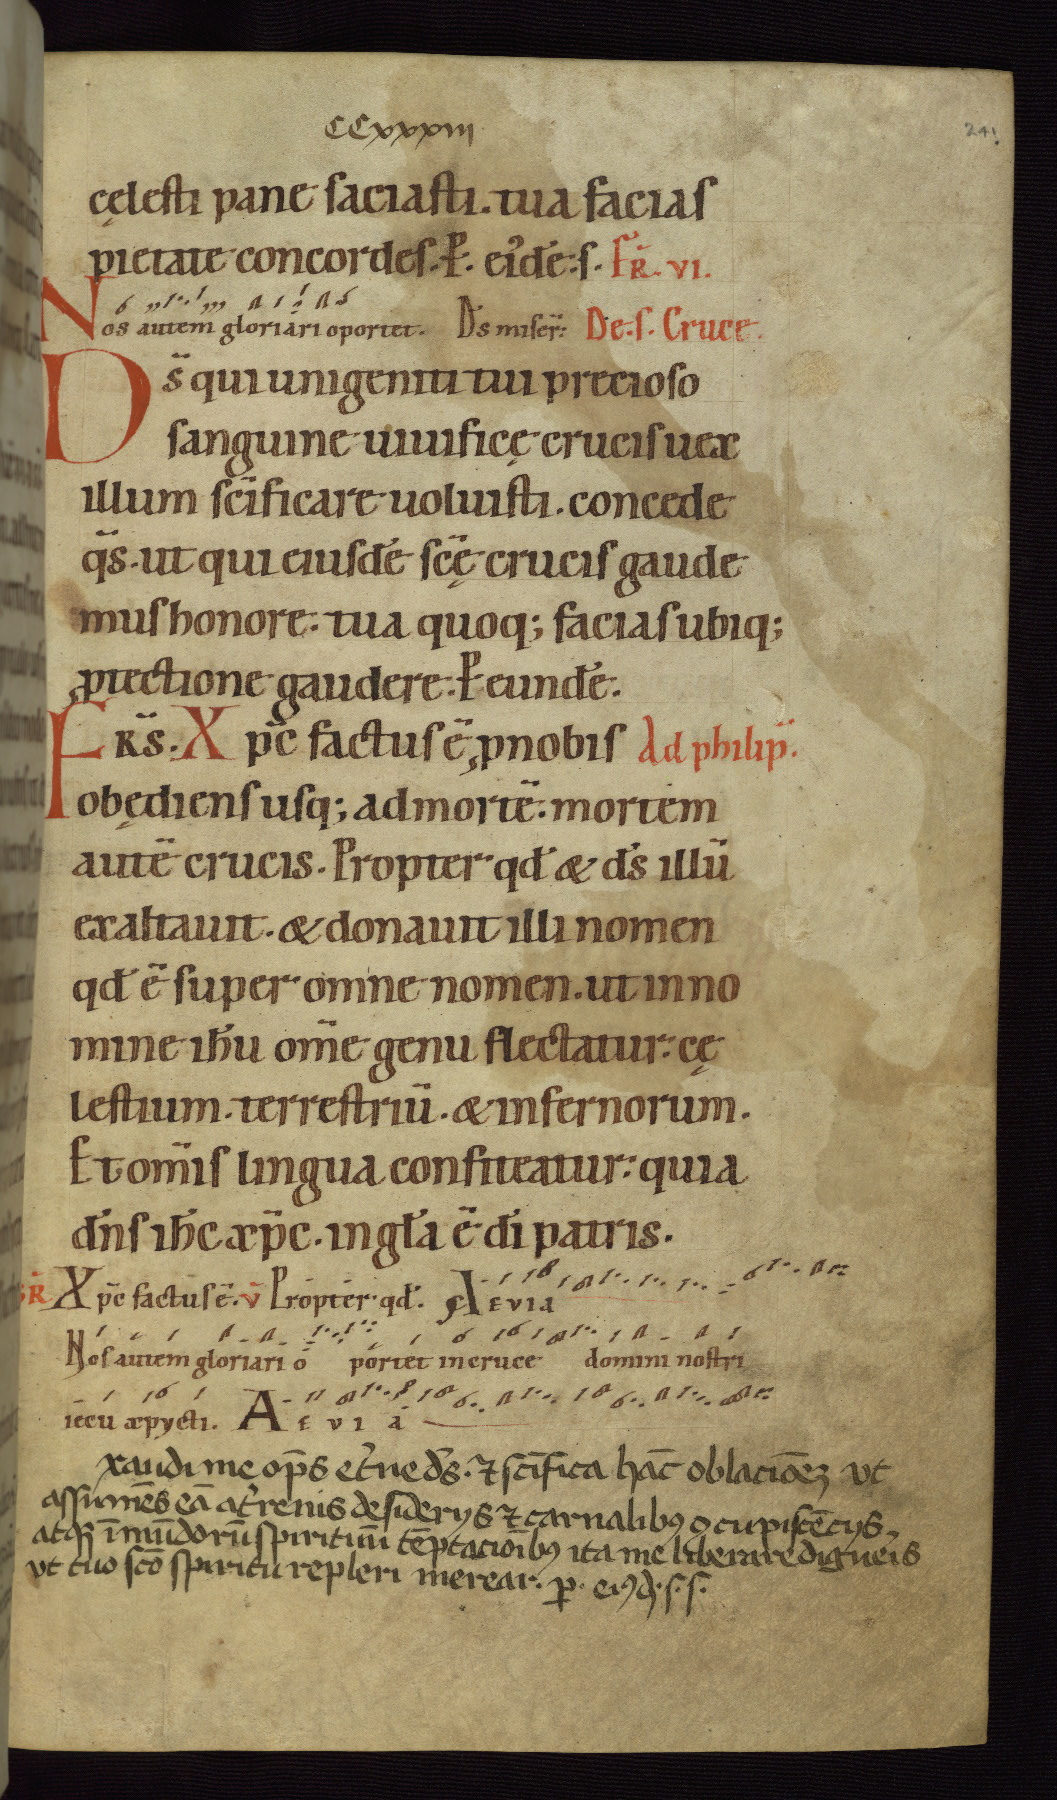 CCxxxiii
241
cęlesti pane saciasti. tua facias
pietate concordes. P. ei'dē. s. FR̄. VI.
Nos autem gloriari oportet. D's miser̄: De. s. Cruce.
Ds̄ qui unigeniti tui precioso
sanguine uiuificę crucis uex
illum sc̄ificare uoluisti. concede
q̄s. ut qui eiusdē sc̄ę crucis gaude
mus honore. tua quoq; facias ubiq;
ꝓtectione gaudere. P eundē.
FRS̄. Xpc̄ factus ē ꝓ nobis Ad philip̄.
obędiens usq; ad mortē. mortem
autē crucis. Propter qd̄ & ds̄ illū
exaltauit. & donauit illi nomen
qd̄ ē super omne nomen. ut in no
mine ih̄u om̄e genu flectatur. cę
lestium. terrestriū. & infernorum.
Et om̄is lingua confiteatur. quia
dn̄s ih̄c xp̄c. in gl̄a ē dī patris.
GR̄ Xpc̄ factus ē. v̄ Propter qd̄. A EVIA
Nos autem gloriari o portet in cruce domini nostri
iecu xpycti. A E V I A
xaudi me op̄s et'ne ds̄. ⁊ sc̄ifica hāc oblaciōeꝫ vt
assumēs eā a t'renis desiderijs ⁊ carnalibꝰ ꝯcupiscēcijs
atqꝫ īmūdorū spirituū tēptacioībꝰ ita me liberare digneis
vt tuo sc̄o spiritu repleri merear. ꝑ. eiꝰd̄. s. s.